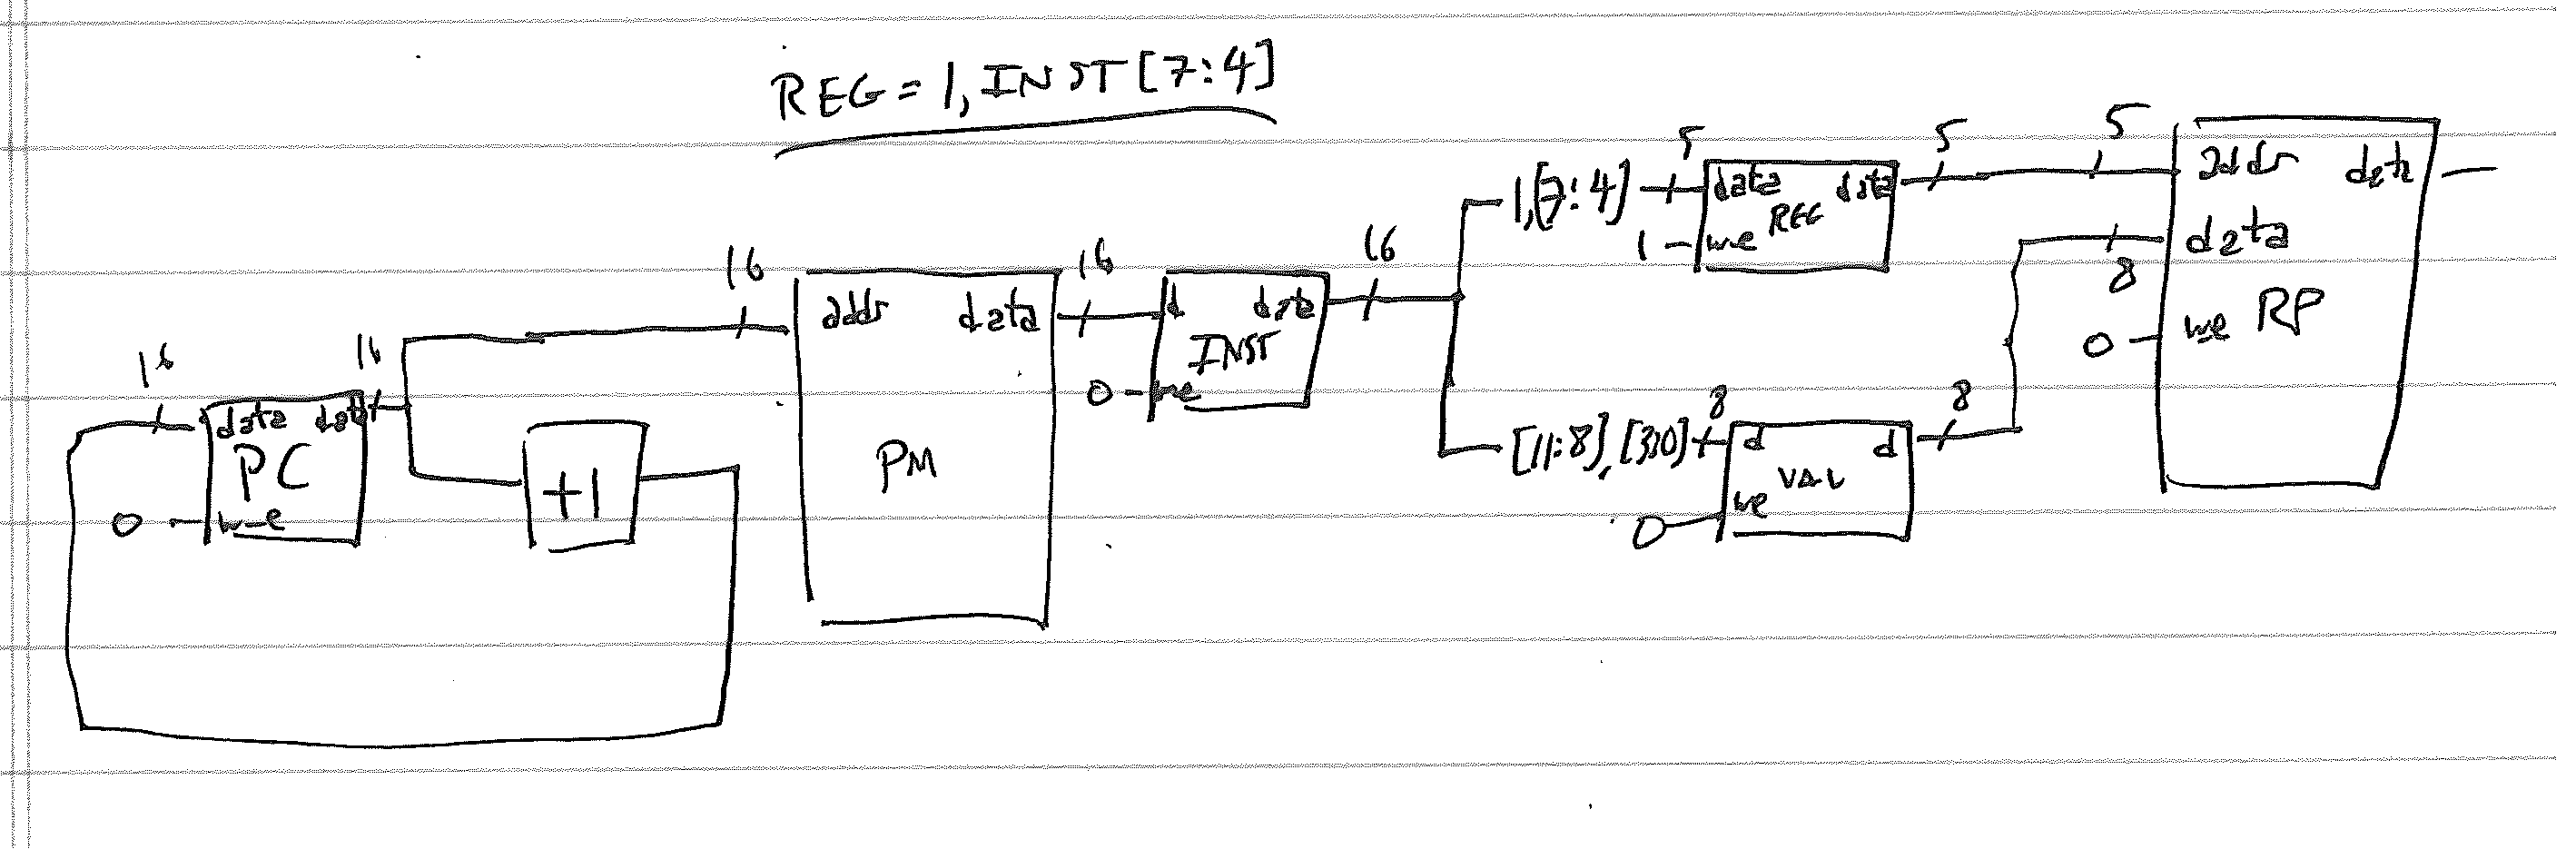 REG = 1, INST[7:4]
16
data data
PC
0 we
16
+1
16
addr data
PM
16
d data
INST
0 we
16
1,[7:4]
5
data data
REG
1 we
5
5
[11:8],[3:0]
8
d d
VAL
we
0
8
8
addr data
data
we RP
0